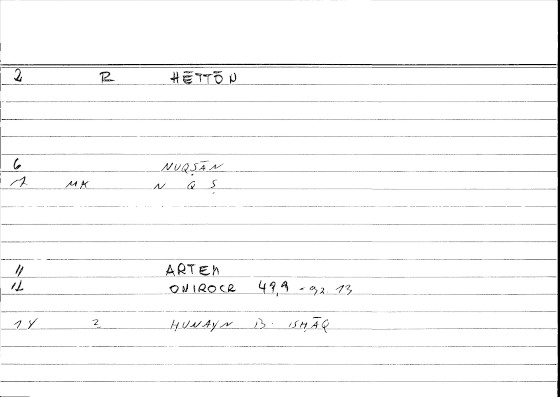 2 R HĒTTŌN
6 NUQṢĀN
7 MK N Q Ṣ
11 ARTEM
12 ONIROCR 49,9 - 92.13
14 2 ḤUNAYN B. ISḤĀQ